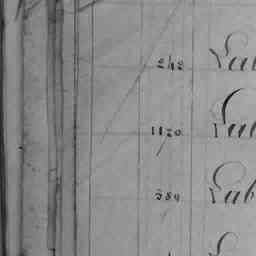 242 Lab
1120 Lab
389 Lab